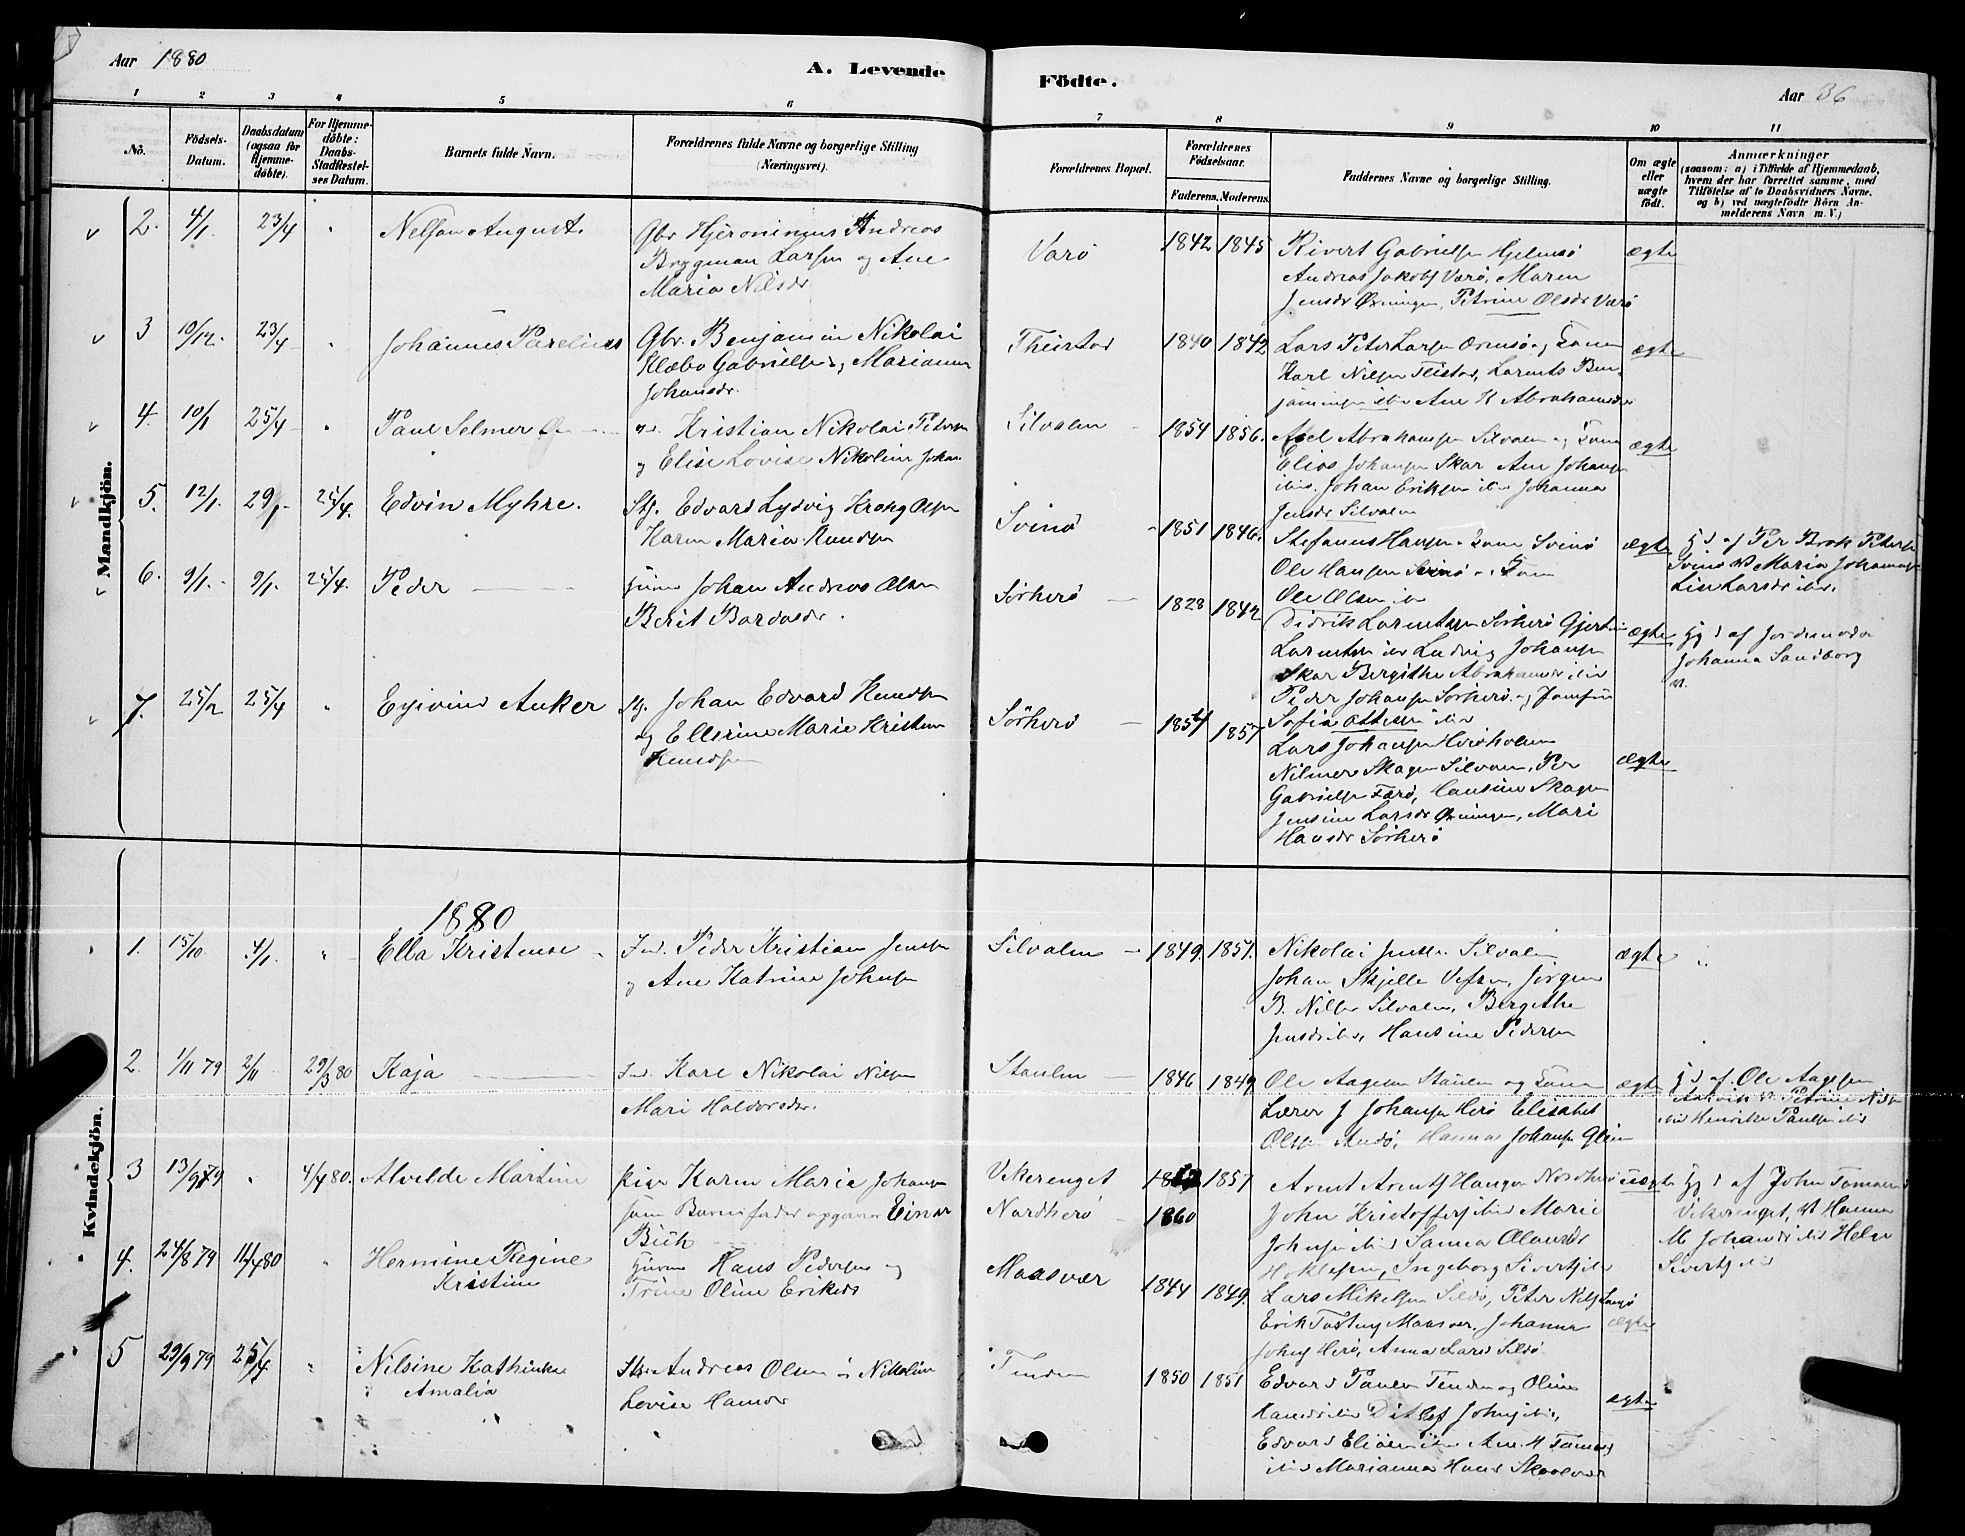 Aar 1880
A. Levende
Födte.
Aar 36
1 2 3 4 5 6 7 8 9 10 11
No.
Födsels-Datum.
Daabsdatum (ogsaa for Hjemmedöbte).
For Hjemmedöbte: Daabs-Stadfæstelses Datum.
Barnets fulde Navn.
Forældrenes fulde Navne og borgerlige Stilling (Næringsvei).
Forældrenes Bopæl.
Forældrenes Födselsaar.
Faderens. Moderens.
Faddernes Navne og borgerlige Stilling.
Om ægte eller uægte födt.
Anmærkninger
(saasom: a) i Tilfælde af Hjemmedaab, hvem der har forrettet samme, med Tilföielse af to Daabsvidners Navne. og b) ved uægtefödte Börn Anmelderens Navn m. V.)
Mandkjön.
2. 4/1. 23/4 " August. Gbr Hjeronimus Andreas
Brygman Larsen og Ane
Maria Nilsdr
Varö 1842 1845
Rivert Gabrielsen Hjelmsö
Andreas Jakobs Varö, Maren
Jensdr Öxningen, Petrine Olsdr Varö
ægte
3 10/12. 23/4 Johannes Parelius Gbr. Benjamin Nikolai
Klæbo Gabrielsen og Marianna
Johansdr.
1840 1842
Lars Peter Larsen
Karl Nilsen
Ane H Abrahamsdr
ægte
4. 10/1 25/4 " Paul Selmer
Kristian Nikolai Peters
og Elise Lovise Nikoline Johan
Silvalen 1854 1856.
Axel Abrahamsen Silvalen og Kone
Elias Johansen Skar Ane Johans
ibid. Johan Eriksen ibid Johanna
Jensdr Silvalen
ægte
5. 12/1. 29/1. 25/4. Edvin Myhre. Stg. Edvard Lydvig Krohg Olsen
Karen Maria Knudsen
Svinö 1851 1846.
Stefanus Hansen Kone Svinö
Ole Hansen Svinö
Ole Olsen ibr
ægte
Hj d af Per Brok Peters
Svinö Maria Johannes
Larsdr ibid.
6. 9/1. 9/1. 25/4. Peder
Johan Andreas Olsen
Berit Bardosdr.
Sörherö 1828 1842
Didrik Larentsen Sörherö
Larentsen ibr Ludvig Johansen
Skar Bergithe Abrahamsdr ibid
Peder Johansen Sörherö og
Sofia Ottesen ibr
ægte
Hj d af Jordemoder
Johanna Sandborg
7. 25/2 25/4 " Eyvind Anker Stg. Johan Edvard Knudsen
og Ellerine Marie Kristine
Knudsen
Sörherö 1854 1857
Lars Johansen
Nilmer Skagen Silvalen, Per
Gabrielsen Færö, Hansine Skagen
Jensine Larsdr Öxningen, Mari
Hansdr Sörherö
ægte
1880
Kvindekjön.
1. 15/10. 4/1. " Ella Kristense Ind. Peder Kristian Jensen
og Ane Katrine Johnsen
Silvalen 1849. 1851.
Nikolai Silvalen
Johan Skjelle Vefsen, Jörgen
B. Nilsen Silvalen, Bergithe
Jensdr ibid., Hansine Pedersen
ægte "
2. 1/11 79 2/11 29/3 80 Kaja
Ind. Karl Nikolai Nilsen
Mari Haldorsdr.
Staulen 1846 1849
Ole Aagesen Staulen og Kone
Lærer J Johansen Herö Elisabet
Olsen Andö, Hanna Johansen Glein
ægte
Hj d af Ole Aagesen
Petrine Nils
ibid Henrikke Paulsen ibid
3 13/9 79 " 4/4 80. Alvilde Martine pige Karen Maria Johans
som Barnefader opgiver Einar
Bich
Vikerenget
Nordherö
1857
1860
Arnt Arnts Hanger Nordherö
John Kristoffers ibid Marie
Johnsen ibid Sanna Olausdr
Ingeborg Siverts ibr
uægte
Hj d af John Tomasen
Vikerenget, Hanna
M Johansd ibid Helge
Siverts ibr
4. 24/8 79 11/4 80 " Hermine Regine
Kristine
Hans Pedersen og
Trine Oline Eriksdr
Maasvær 1844 1849.
Lars Mikelsen Sildö, Peter Nils
Erik Maasvær, Johanna
Johns Herö, Anna Larsd Sildö.
ægte
5 29/9 79 25/4 " Nilsine Kathinka
Amalia
Andreas Olsen og Nikoline
Lovise Hansdr
Tenden 1850 1851
Edvard Paulsen Tenden og Oline
Hansdr ibr Ditlef Johns ibr,
Edvard ibr Ane M Tomas
ibid Marianna Hansd Skaalvær
ægte